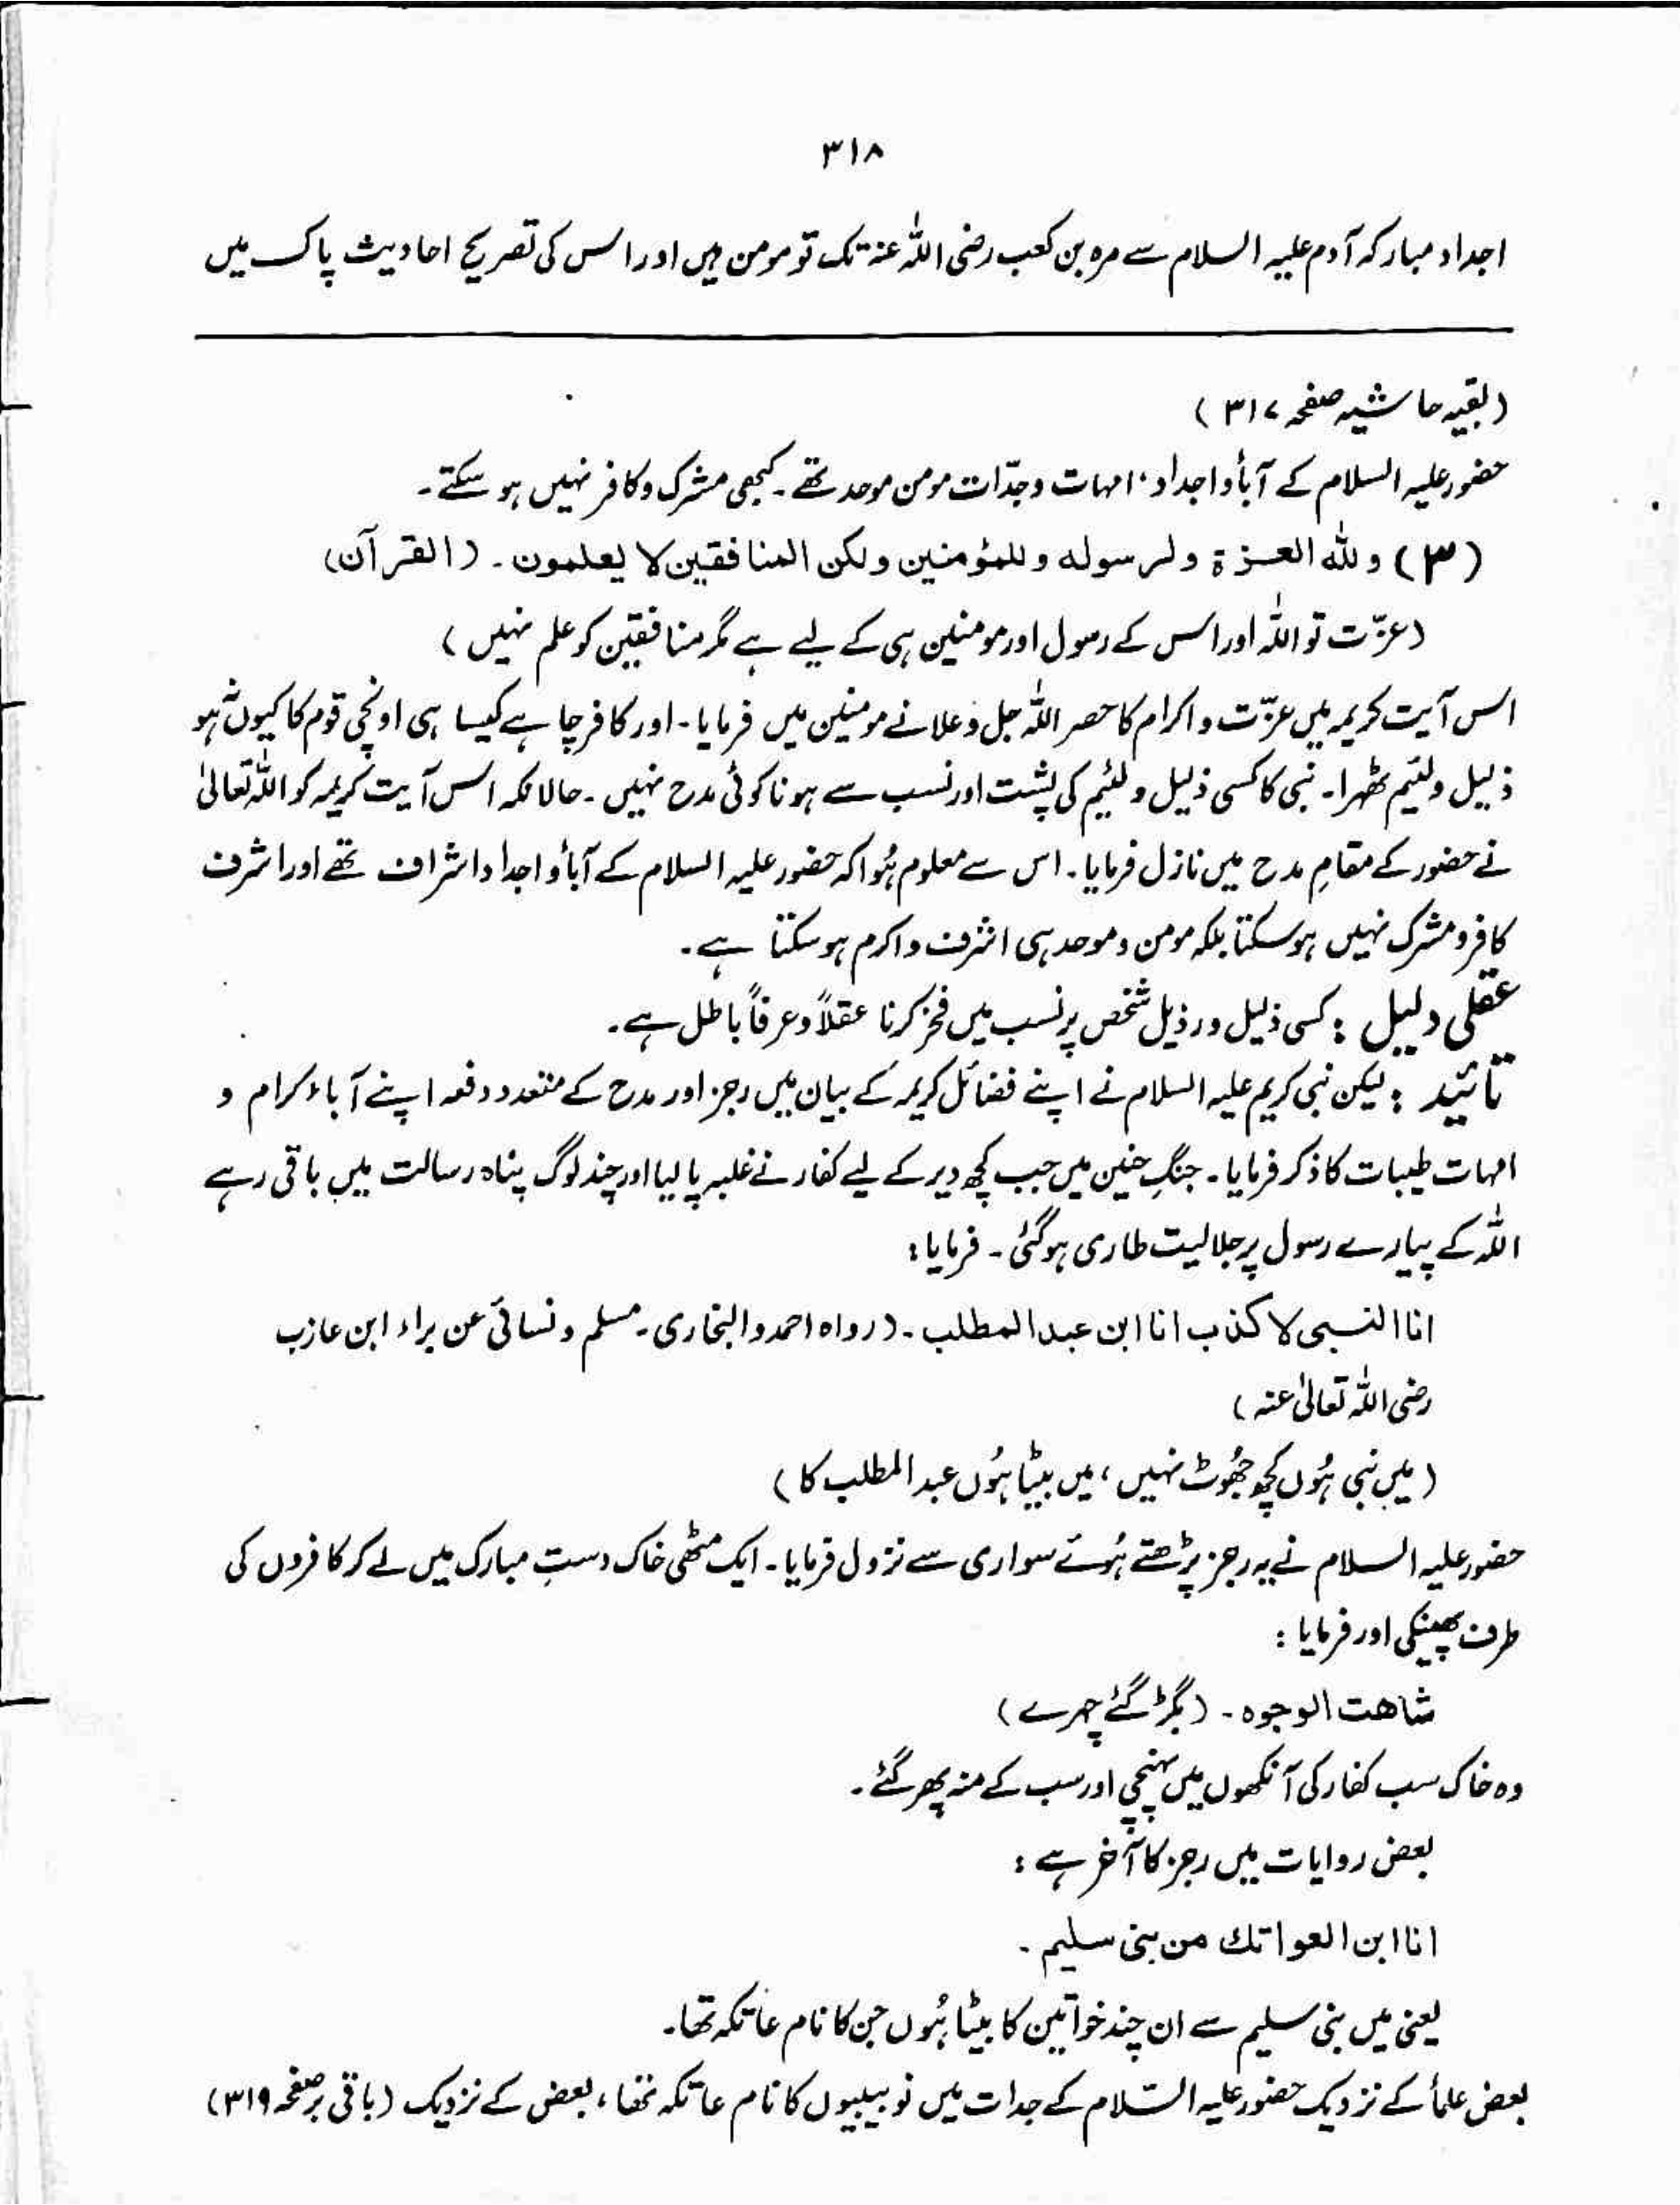 ۳۱۸
اجداد مبارکہ آدم علیہ السلام سے مرہ بن کعب رضی اللہ عنہ تک تو مومن ہیں اور اس کی تصریح احادیث پاک میں
(بقیہ حاشیہ صفحہ ۳۱۷)
حضور علیہ السلام کے آبأ و اجداد، امہات و جدّات مومن موحد تھے۔ کبھی مشرک و کافر نہیں ہو سکتے۔
(۳) وللہ العزۃ ولرسولہ وللمؤمنین ولکن المنافقین لا یعلمون۔ (القرآن)
(عزّت تو اللہ اور اس کے رسول اور مومنین ہی کے لیے ہے مگر منافقین کو علم نہیں)
اس آیت کریمہ میں عزّت و اکرام کا حصر اللہ جل و علا نے مومنین میں فرمایا۔ اور کافر چاہے کیسا ہی اونچی قوم کا کیوں نہ ہو
ذلیل و لئیم ٹھہرا۔ نبی کا کسی ذلیل و لئیم کی پشت اور نسب سے ہونا کوئی مدح نہیں۔ حالانکہ اس آیت کریمہ کو اللہ تعالیٰ
نے حضور کے مقامِ مدح میں نازل فرمایا۔ اس سے معلوم ہُوا کہ حضور علیہ السلام کے آبأ و اجداد اشراف تھے اور اشرف
کافر و مشرک نہیں ہو سکتا بلکہ مومن و موحد ہی اشرف و اکرم ہو سکتا ہے۔
عقلی دلیل : کسی ذلیل و رذیل شخص پر نسب میں فخر کرنا عقلاً و عرفاً باطل ہے۔
تائید : لیکن نبی کریم علیہ السلام نے اپنے فضائل کریمہ کے بیان میں رجز اور مدح کے متعدد دفعہ اپنے آباء کرام و
امہات طیبات کا ذکر فرمایا۔ جنگِ حنین میں جب کچھ دیر کے لیے کفار نے غلبہ پا لیا اور چند لوگ پناہ رسالت میں باقی رہے
اللہ کے پیارے رسول پر جلالیت طاری ہو گئی۔ فرمایا :
انا النبی لا کذب انا ابن عبد المطلب۔ (رواہ احمد والبخاری۔ مسلم و نسائی عن براء ابن عازب
رضی اللہ تعالیٰ عنہ)
(میں نبی ہُوں کچھ جھُوٹ نہیں، میں بیٹا ہُوں عبد المطلب کا)
حضور علیہ السلام نے یہ رجز پڑھتے ہُوئے سواری سے نزول فرمایا۔ ایک مٹھی خاک دستِ مبارک میں لے کر کافروں کی
طرف پھینکی اور فرمایا :
شاھت الوجوہ۔ (بگڑ گئے چہرے)
وہ خاک سب کفار کی آنکھوں میں پہنچی اور سب کے منہ پھر گئے۔
بعض روایات میں رجز کا آخر ہے :
انا ابن العواتك من بنی سلیم۔
یعنی میں بنی سلیم سے ان چند خواتین کا بیٹا ہُوں جن کا نام عاتکہ تھا۔
بعض علمأ کے نزدیک حضور علیہ السّلام کے جدات میں نو بیبیوں کا نام عاتکہ تھا، بعض کے نزدیک (باقی بر صفحہ ۳۱۹)